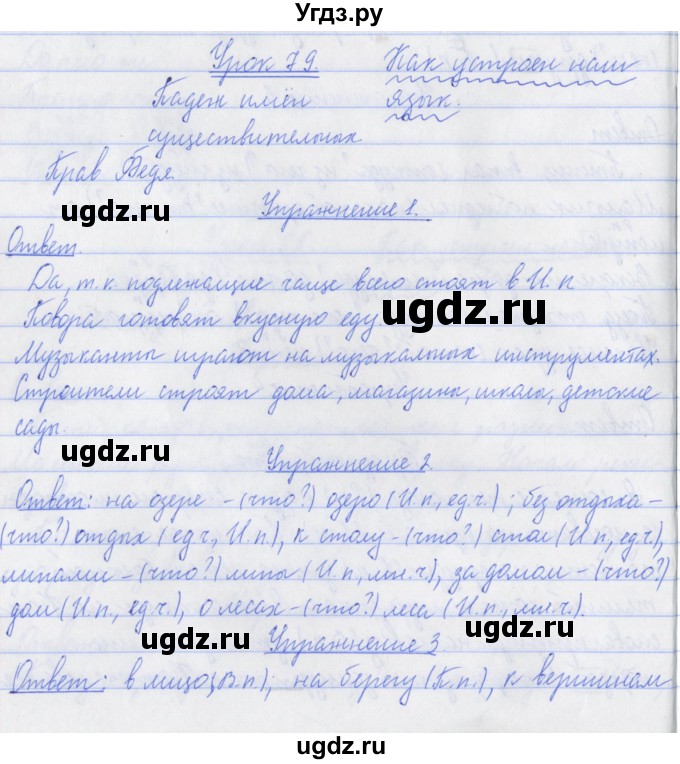 Угдз.ру
Урок 79. Как устроен наш
Падеж имён язык.
существительных
Прав Федя.
ugdz.ru Упражнение 1.
Ответ.
Да, т.к. подлежащие чаще всего стоят в И.п.
Повора готовят вкусную еду. ugdz.ru
Музыканты играют на музыкальных инструментах.
Строители строят дома, магазины, школы, детские
сады.
ugdz.ru Упражнение 2.
Ответ: на озере - (что?) озеро (И.п., ед.ч.); без отдыха -
(что?) отдых (ед.ч., И.п.), к столу - (что?) стол (И.п, ед.ч.),
липами - (что?) липы (И.п., мн.ч.), за домом - (что?)
дом (И.п., ед.ч.), о лесах - (что?) леса (И.п., мн.ч.).
ugdz.ru Упражнение 3 ugdz.ru
Ответ: в лицо (В.п.); на берегу (П.п.), к вершинам
ugdz.ru